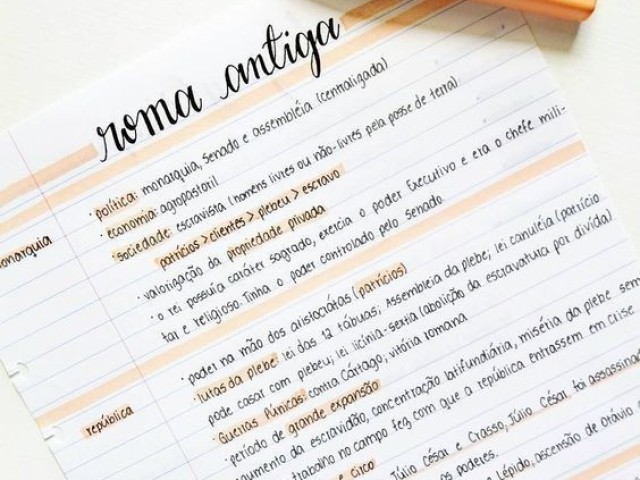 roma antiga
• política: monarquia, senado e assembléia (centralizada)
• economia: agropastoril
• sociedade: escravista (homens livres ou não-livres pela posse de terra)
patrícios > clientes > plebeu > escravo
onarquia
• valorização da propriedade privada
• o rei possuía caráter sagrado, exercia o poder Executivo e era o chefe mili-
tar e religioso. Tinha o poder controlado pelo senado.
• poder na mão dos aristocratas (patrícios)
• lutas da plebe: lei das 12 tábuas; Assembleia da plebe; lei canuléia (patrício
pode casar com plebeu; lei licínia-sextia (abolição da escravatura por dívida)
república
• Guerras Púnicas: contra Cártago; vitória romana
• período de grande expansão
aumento da escravidão, concentração latifundiária, miséria da plebe sem
trabalho no campo fez com que a república entrassem em crise
e circo
Júlio César e Crasso, Júlio César foi assassina
os poderes.
Lépido, ascensão de Otávio